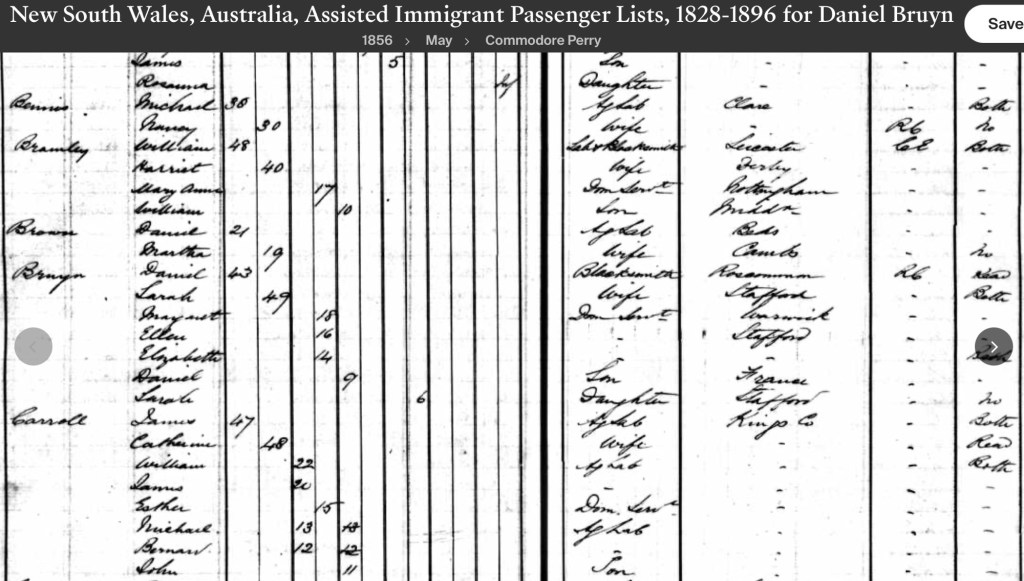 New South Wales, Australia, Assisted Immigrant Passenger Lists, 1828-1896 for Daniel Bruyn
Save
1856 > May > Commodore Perry
James 5 Son - -
Rosanna Daughter - -
Bennis Michael 38 Ag Lab Clare - Both
Nancy 30 Wife - RC No
Bramley William 48 Lab & Blacksmith Leicester CE Both
Harriet 40 Wife Derby - -
Mary Anne 17 Dom Servt Nottingham - -
William 10 Son Middx - -
Brown Daniel 21 Ag Lab Beds - -
Martha 19 Wife Camb - No
Bruyn Daniel 43 Blacksmith Roscommon RC Read
Sarah 49 Wife Stafford - Both
Margaret 18 Dom Servt Warwick - -
Ellen 16 - Stafford -
Elizabeth 14 - - - Both
Daniel 9 Son France - -
Sarah 6 Daughter Stafford - No
Carroll James 47 Ag Lab Kings Co - Both
Catherine 48 Wife - - Read
William 22 Ag Lab - - Both
James 20 - - - -
Esther 15 Dom Servt - - -
Michael 13 13 Ag Lab - - -
Bernard 12 12 - - - -
John 11 Son - - -